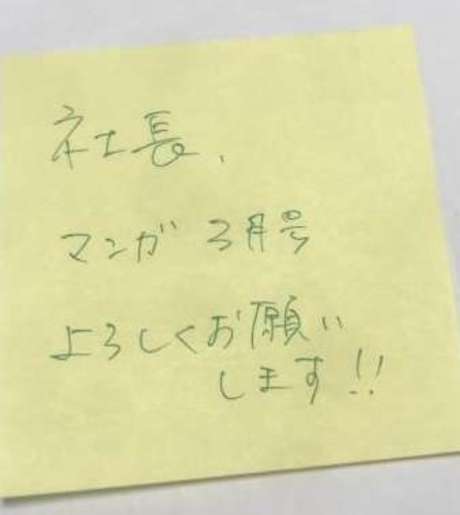 社長、
マンガ 3月号
よろしくお願い
します!!